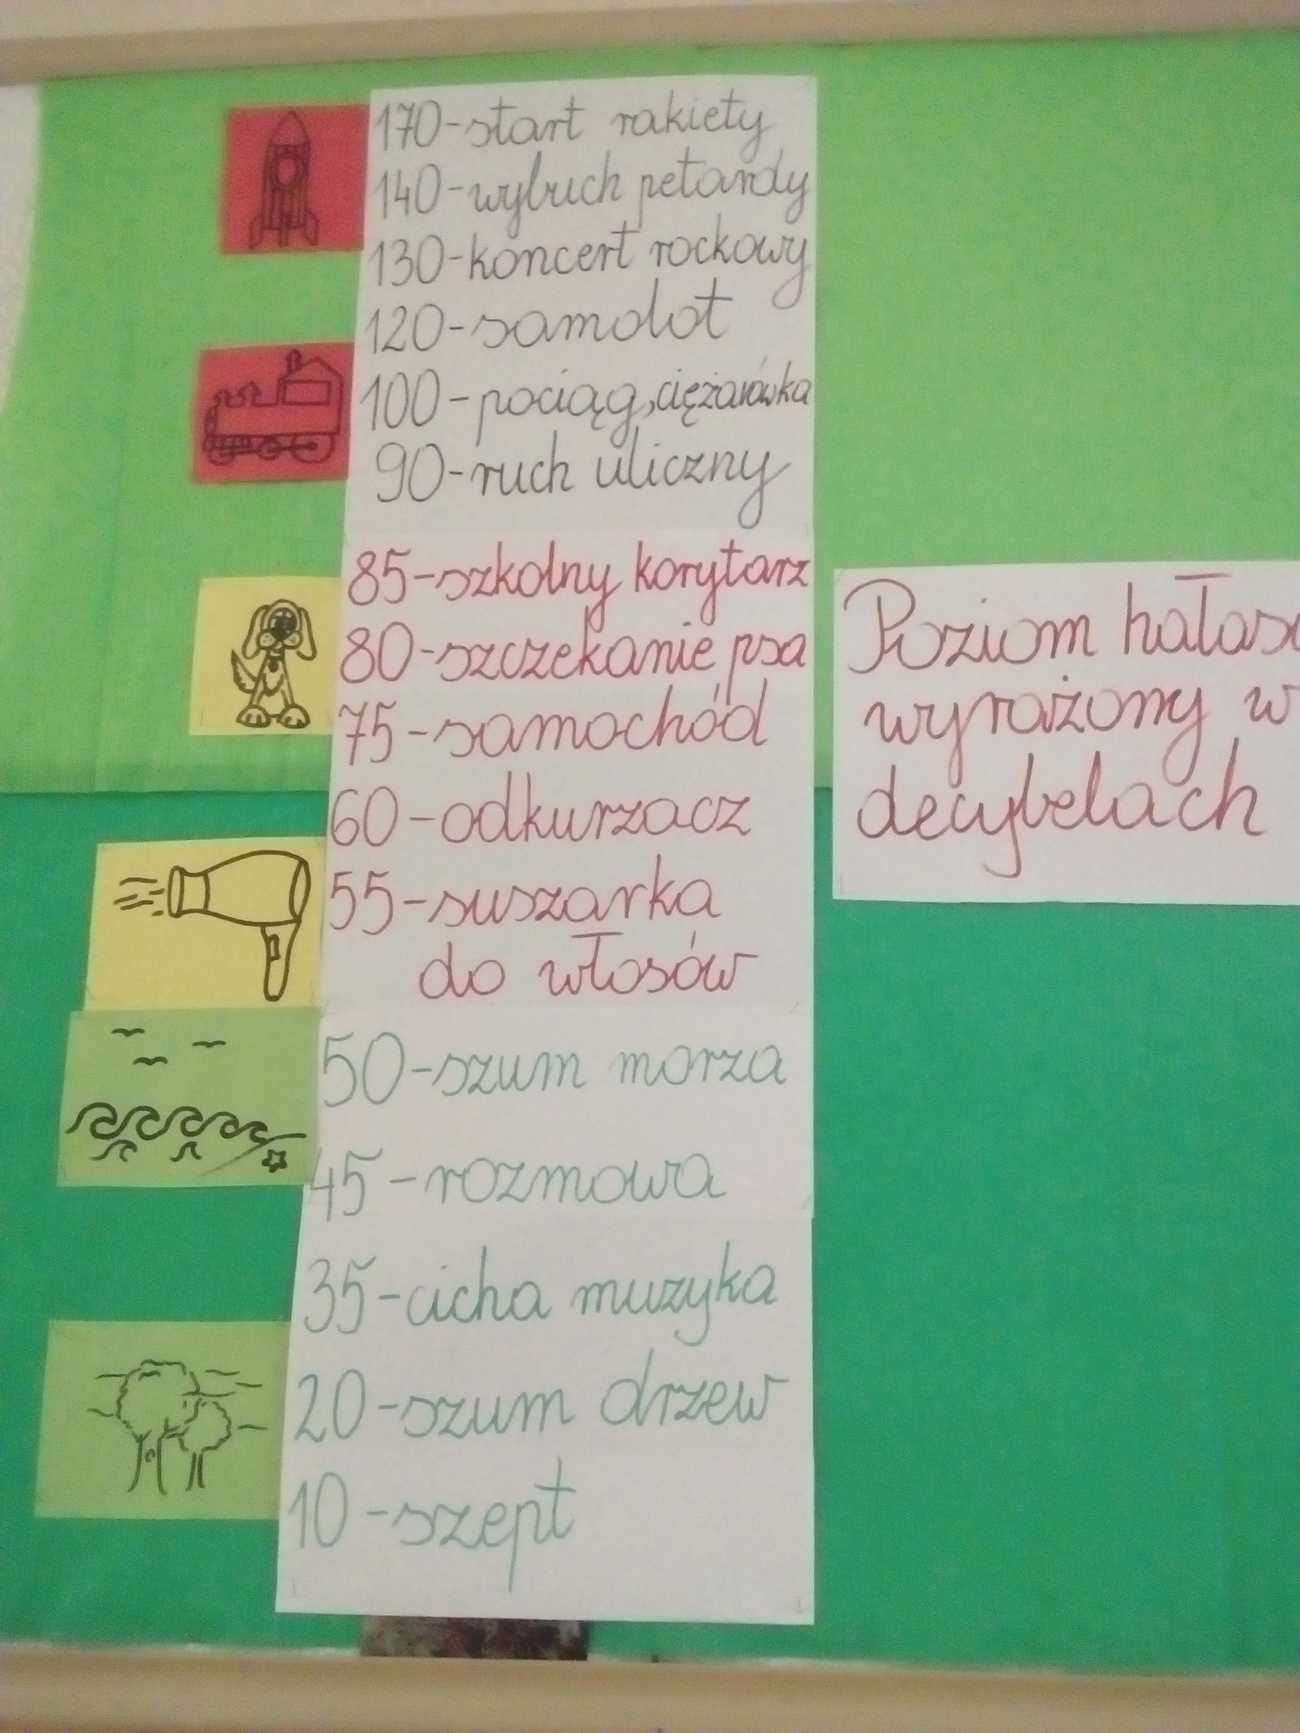 170-start rakiety
140-wybuch petardy
130-koncert rockowy
120-samolot
100-pociąg, ciężarówka
90-ruch uliczny
85-szkolny korytarz
80-szczekanie psa
75-samochód
60-odkurzacz
55-suszarka
do włosów
50-szum morza
45-rozmowa
35-cicha muzyka
20-szum drzew
10-szept
Poziom
wyrażony w
decybelach